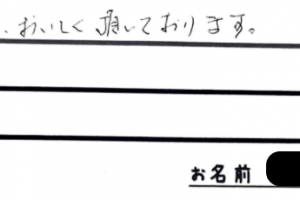 、おいしく頂いております。
お名前